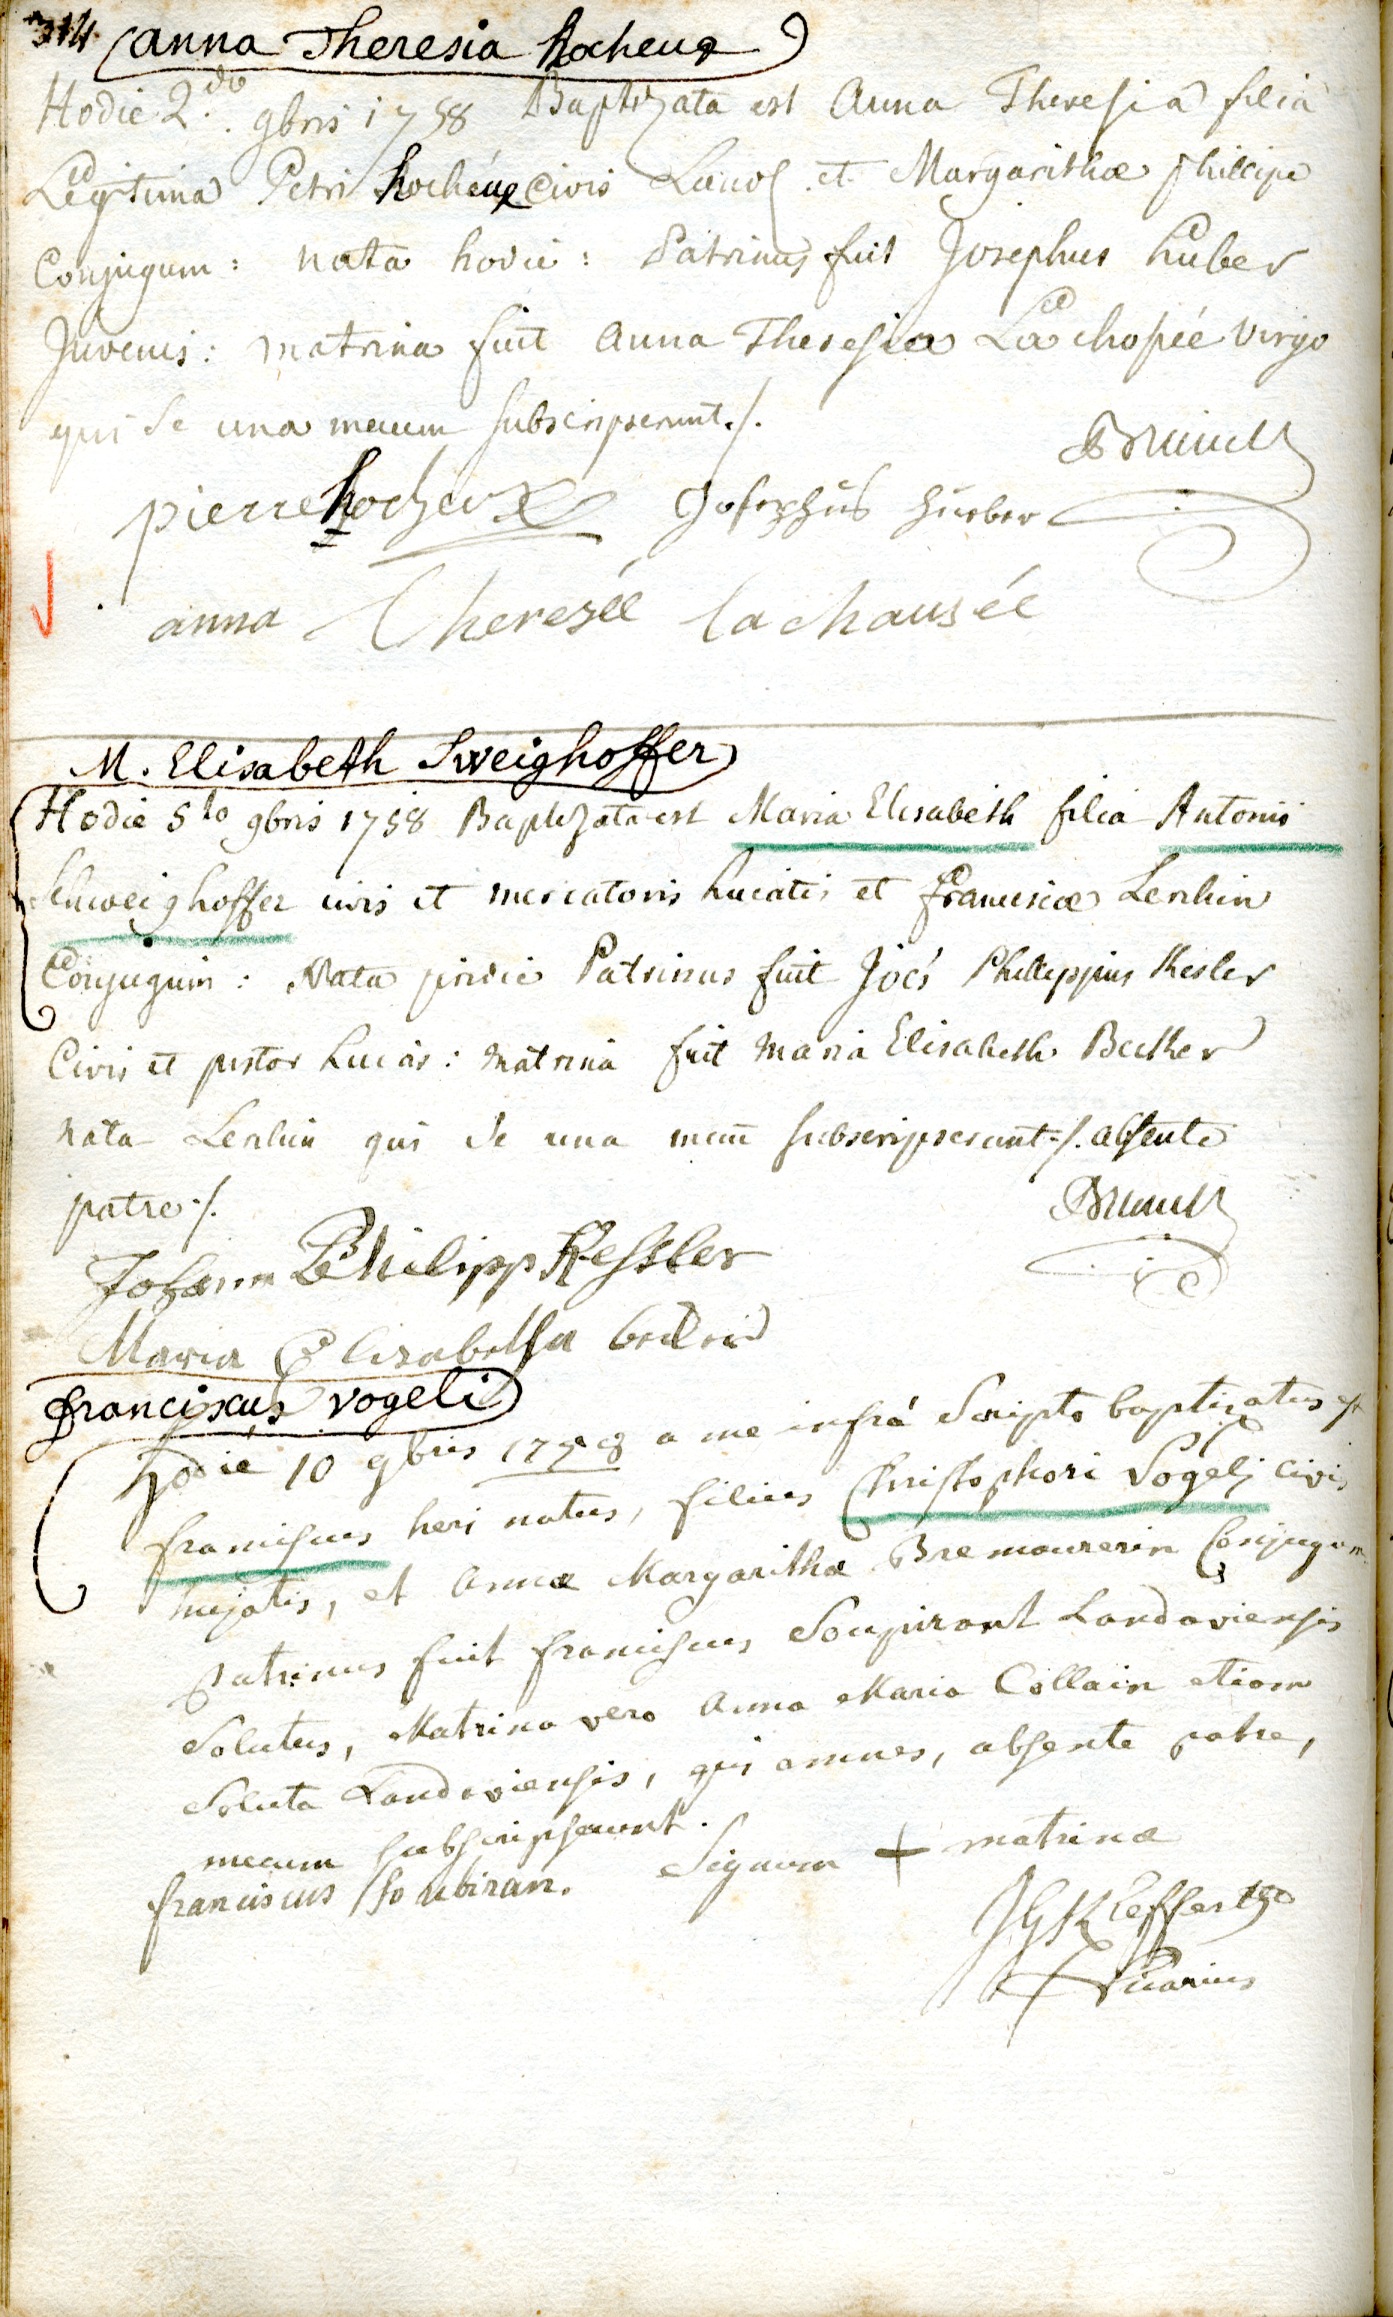 314. Anna Theresia Hocheux
Hodie 2.do 9bris 1758 Baptizata est Anna Theresia filia
Legitima Petri Hocheux Civis et Margarithæ Phillipe
Conjugum : nata hodie : Patrinus fuit Josephus Huber
Juvenis : matrina fuit Anna Theresia La chosée Virgo
qui se una mecum subscripserunt ./.
pierre hocheux Josephus Hueber
anna Theresée lachausée
M. Elisabeth Sweighoffer
Hodie 5to 9bris 1758 Baptizata est Maria Elisabeth filia Antonii
Schweighoffer civis et mercatoris huiatis et Franciscæ Lerchin
Conjugum : Nata pridie Patrinus fuit Joës Phillippius Kesler
Civis et pistor huias : matrina fuit Maria Elisabeth Becker
nata Lerchin qui se una mecū subscripserunt ./. absente
patre ./.
Johann Philipp Kessler
Maria Elisabetha
franciscus vogeli
hodie 10 9bris 1758 a me infrá Scripto baptizatus est
franciscus heri natus, filius Christophori Vögelj civis
hujatis, et Annæ Margarithæ Bremaurerin Conjugum
patrinus fuit franciscus Soupirant Landaviensis
Solutus, Matrina vero Anna Maria Collain etiam
Soluta Landaviensis, qui omnes, absente patre,
mecum subscripserunt.
franciscus soubiran. Signum + matrinæ
JGKieffer
Vicarius